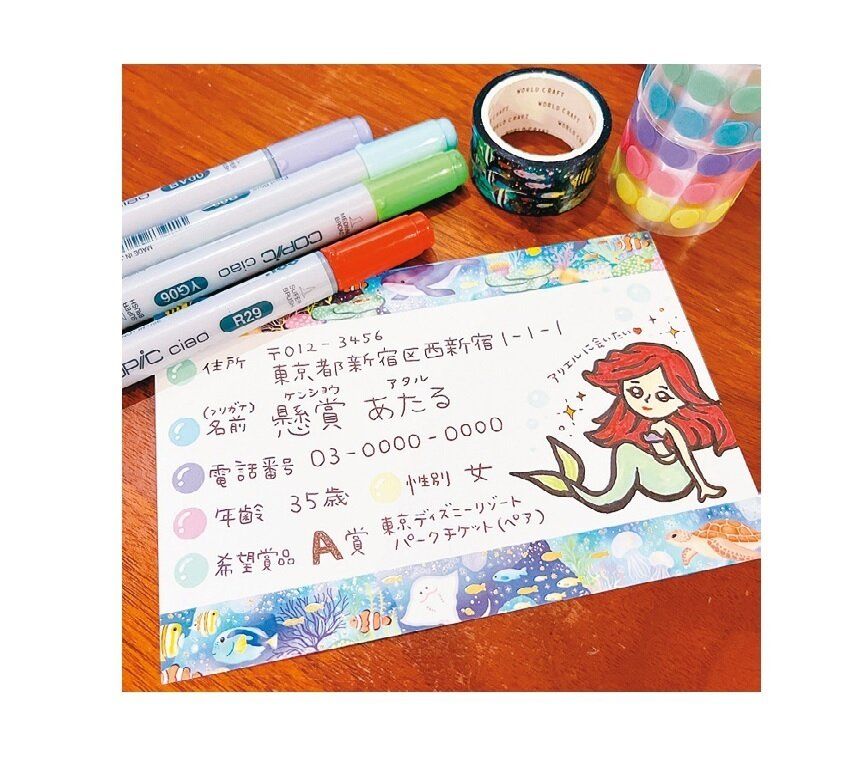 WORLD CRAFT
WORLD CRAFT
COPIC ciao
YG06
COPIC ciao
R29
住所
〒012-3456
東京都新宿区西新宿1-1-1
アリエルに会いたい♥
(フリガナ)
ケンショウ アタル
名前 懸賞 あたる
電話番号 03-0000-0000
年齢 35歳 性別 女
希望賞品 A賞 東京ディズニーリゾート
パークチケット(ペア)